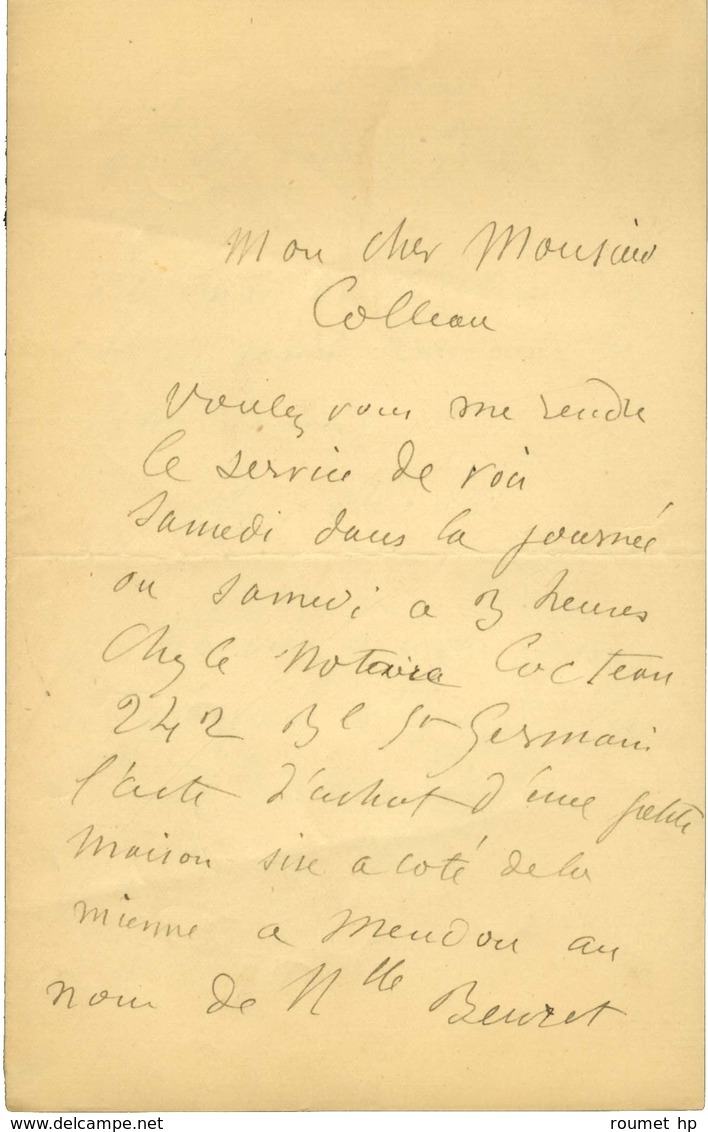 Mon cher Monsieur
Colleau
Voulez vous me rendre
le service de voir
Samedi dans la journée
ou samedi a 3 heures
Chez le Notaire Cocteau
242 Bd St Germain
l'acte d'achat d'une petite
maison sise a coté de la
mienne a Meudon au
nom de Mlle Beuret
delcampe.net
roumet hp